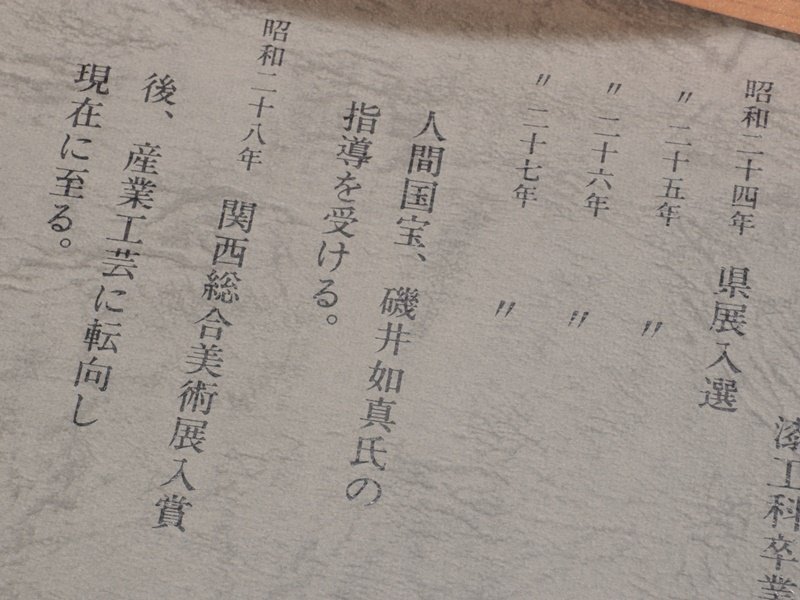 漆工科卒業
昭和二十四年 県展入選
〃 二十五年 〃
〃 二十六年 〃
〃 二十七年 〃
人間国宝、磯井如真氏の
指導を受ける。
昭和二十八年 関西総合美術展入賞
後、産業工芸に転向し
現在に至る。